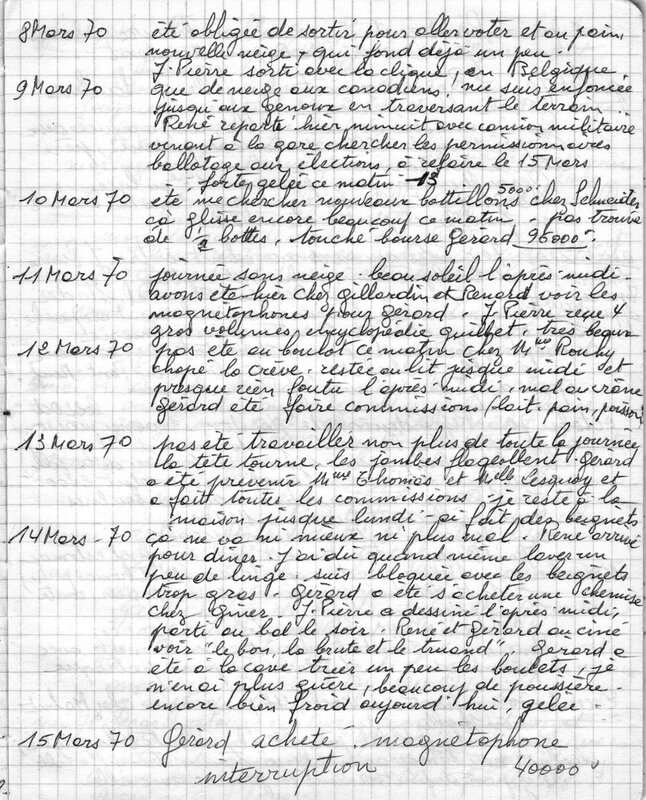 8 Mars 70 été obligée de sortir pour aller voter et au pain,
nouvelle neige + qui fond déjà un peu.
J. Pierre sorti avec la clique, en Belgique,
9 Mars 70 que de neige aux canadiens, me suis enfoncée
jusqu'aux genoux en traversant le terrain
René reparti hier minuit avec camion militaire
venant à la gare chercher les permissionnaires
ballotage aux élections à refaire le 15 Mars
forte gelée ce matin -13
10 Mars 70 été me chercher nouveaux bottillons 5000 chez Schneider
ça glisse encore beaucoup ce matin. pas trouvé
de 1/2 bottes, touché bourse Gérard 95000
11 Mars 70 journée sans neige. beau soleil l'après-midi.
avons été hier chez Gillardin et Renard voir les
magnétophones pour Gérard. J. Pierre reçu 4
gros volumes, encyclopédie quillet. très beaux
12 Mars 70 pas été au boulot ce matin chez Mme
chopé la crève. restée au lit jusque midi et
presque rien foutu l'après-midi, mal au crâne
Gérard été faire commissions (lait, pain, poisson
13 Mars 70 pas été travailler non plus de toute la journée
la tête tourne, les jambes flageollent. Gérard
a été prévenir Mme Thomas et Melle et
a fait toutes les commissions. je reste à la
maison jusque lundi. ai fait des beignets
14 Mars - 70 ça ne va ni mieux ni plus mal. René arrivé
pour dîner. J'ai dû quand même laver un
peu de linge. suis bloquée avec les beignets
trop gras. Gérard a été s'acheter une chemise
chez . J. Pierre a dessiné l'après-midi,
parti au bal le soir. René et Gérard au ciné
voir "le bon, la brute et le truand". Gérard a
été à la cave trier un peu les boulets, je
n'en ai plus guère, beaucoup de poussière.
encore bien froid aujourd'hui, gelée.
15 Mars 70 Gérard acheté magnétophone
interruption 40000